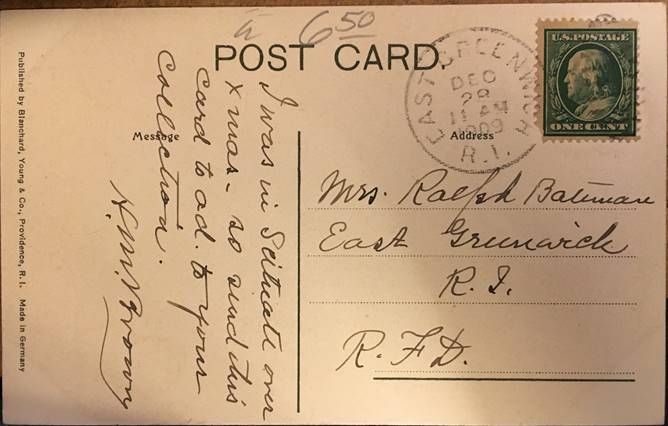 6 50
POST CARD.
EAST GREENWICH
DEC
28
11 AM
1909
R.I.
U.S. POSTAGE
ONE CENT
Message
Address
I was in Scituate over
Xmas - so send this
card to ad. to your
collection.
H. M. Brown
Mrs. Ralph Bateman
East Greenwich
R. I.
R. F. D.
Published by Blanchard, Young & Co., Providence, R. I. Made in Germany